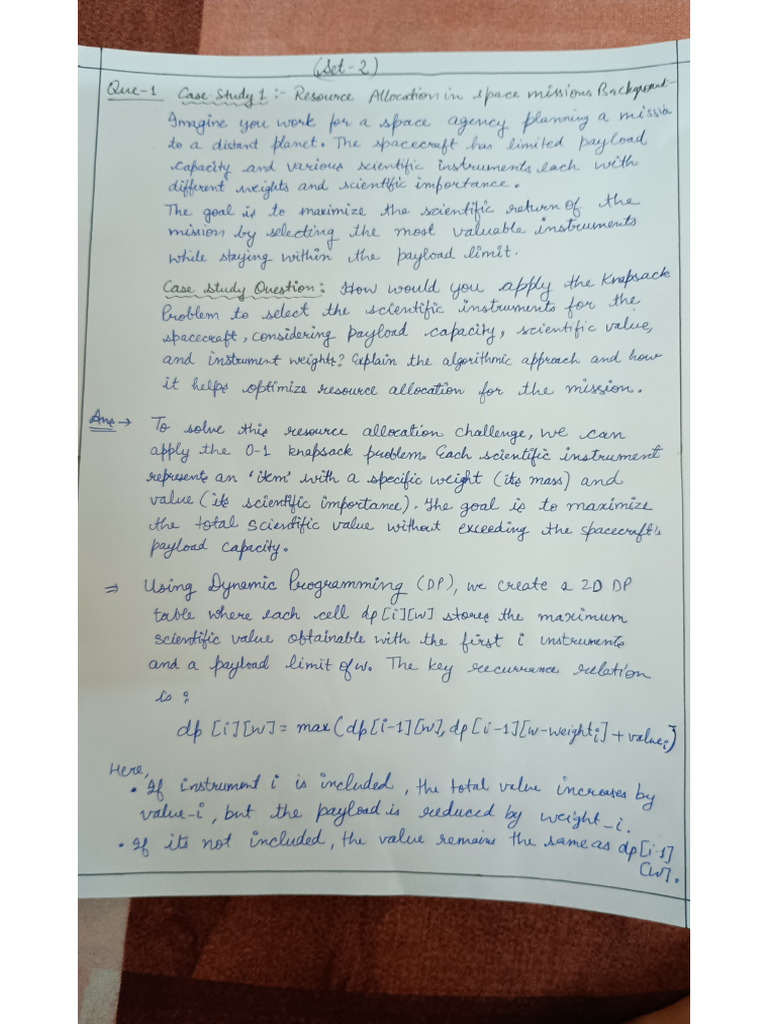 (Set-2)
Que-1 Case Study 1 :- Resource Allocation in space missions Background-
Imagine you work for a space agency planning a missio
to a distant planet. The spacecraft has limited payload
capacity and various scientific instruments each with
different weights and scientific importance.
The goal is to maximize the scientific return of the
mission by selecting the most valuable instruments
while staying within the payload limit.
Case study Question: How would you apply the Knapsack
Problem to select the scientific instruments for the
spacecraft, considering payload capacity, scientific value,
and instrument weights? Explain the algorithmic approach and how
it helps optimize resource allocation for the mission.
Ans → To solve this resource allocation challenge, we can
apply the 0-1 knapsack problem. Each scientific instrument
represents an 'item' with a specific weight (its mass) and
value (its scientific importance). The goal is to maximize
the total scientific value without exceeding the spacecraft's
payload capacity.
⇒ Using Dynamic Programming (DP), we create a 2D DP
table where each cell dp[i][w] stores the maximum
scientific value obtainable with the first i instruments
and a payload limit of w. The key recurrance relation
is :
dp[i][w] = max(dp[i-1][w], dp[i-1][w-weight_i] + value_i)
Here,
• If instrument i is included, the total value increases by
value-i, but the payload is reduced by weight_i.
• If its not included, the value remains the same as dp[i-1]
[w].